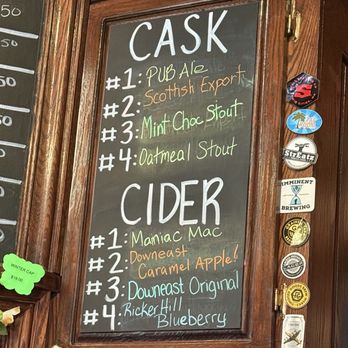 CASK
#1: PUB Ale
#2: Scottsh Export
#3: Mint Choc Stout
#4: Oatmeal Stout
CIDER
#1: Maniac Mac
#2: Downeast
Caramel Apple!
#3: Downeast Original
#4: Ricker Hill
Blueberry
50
50
WINTER CAP
STREATS
IMMINENT
BREWING